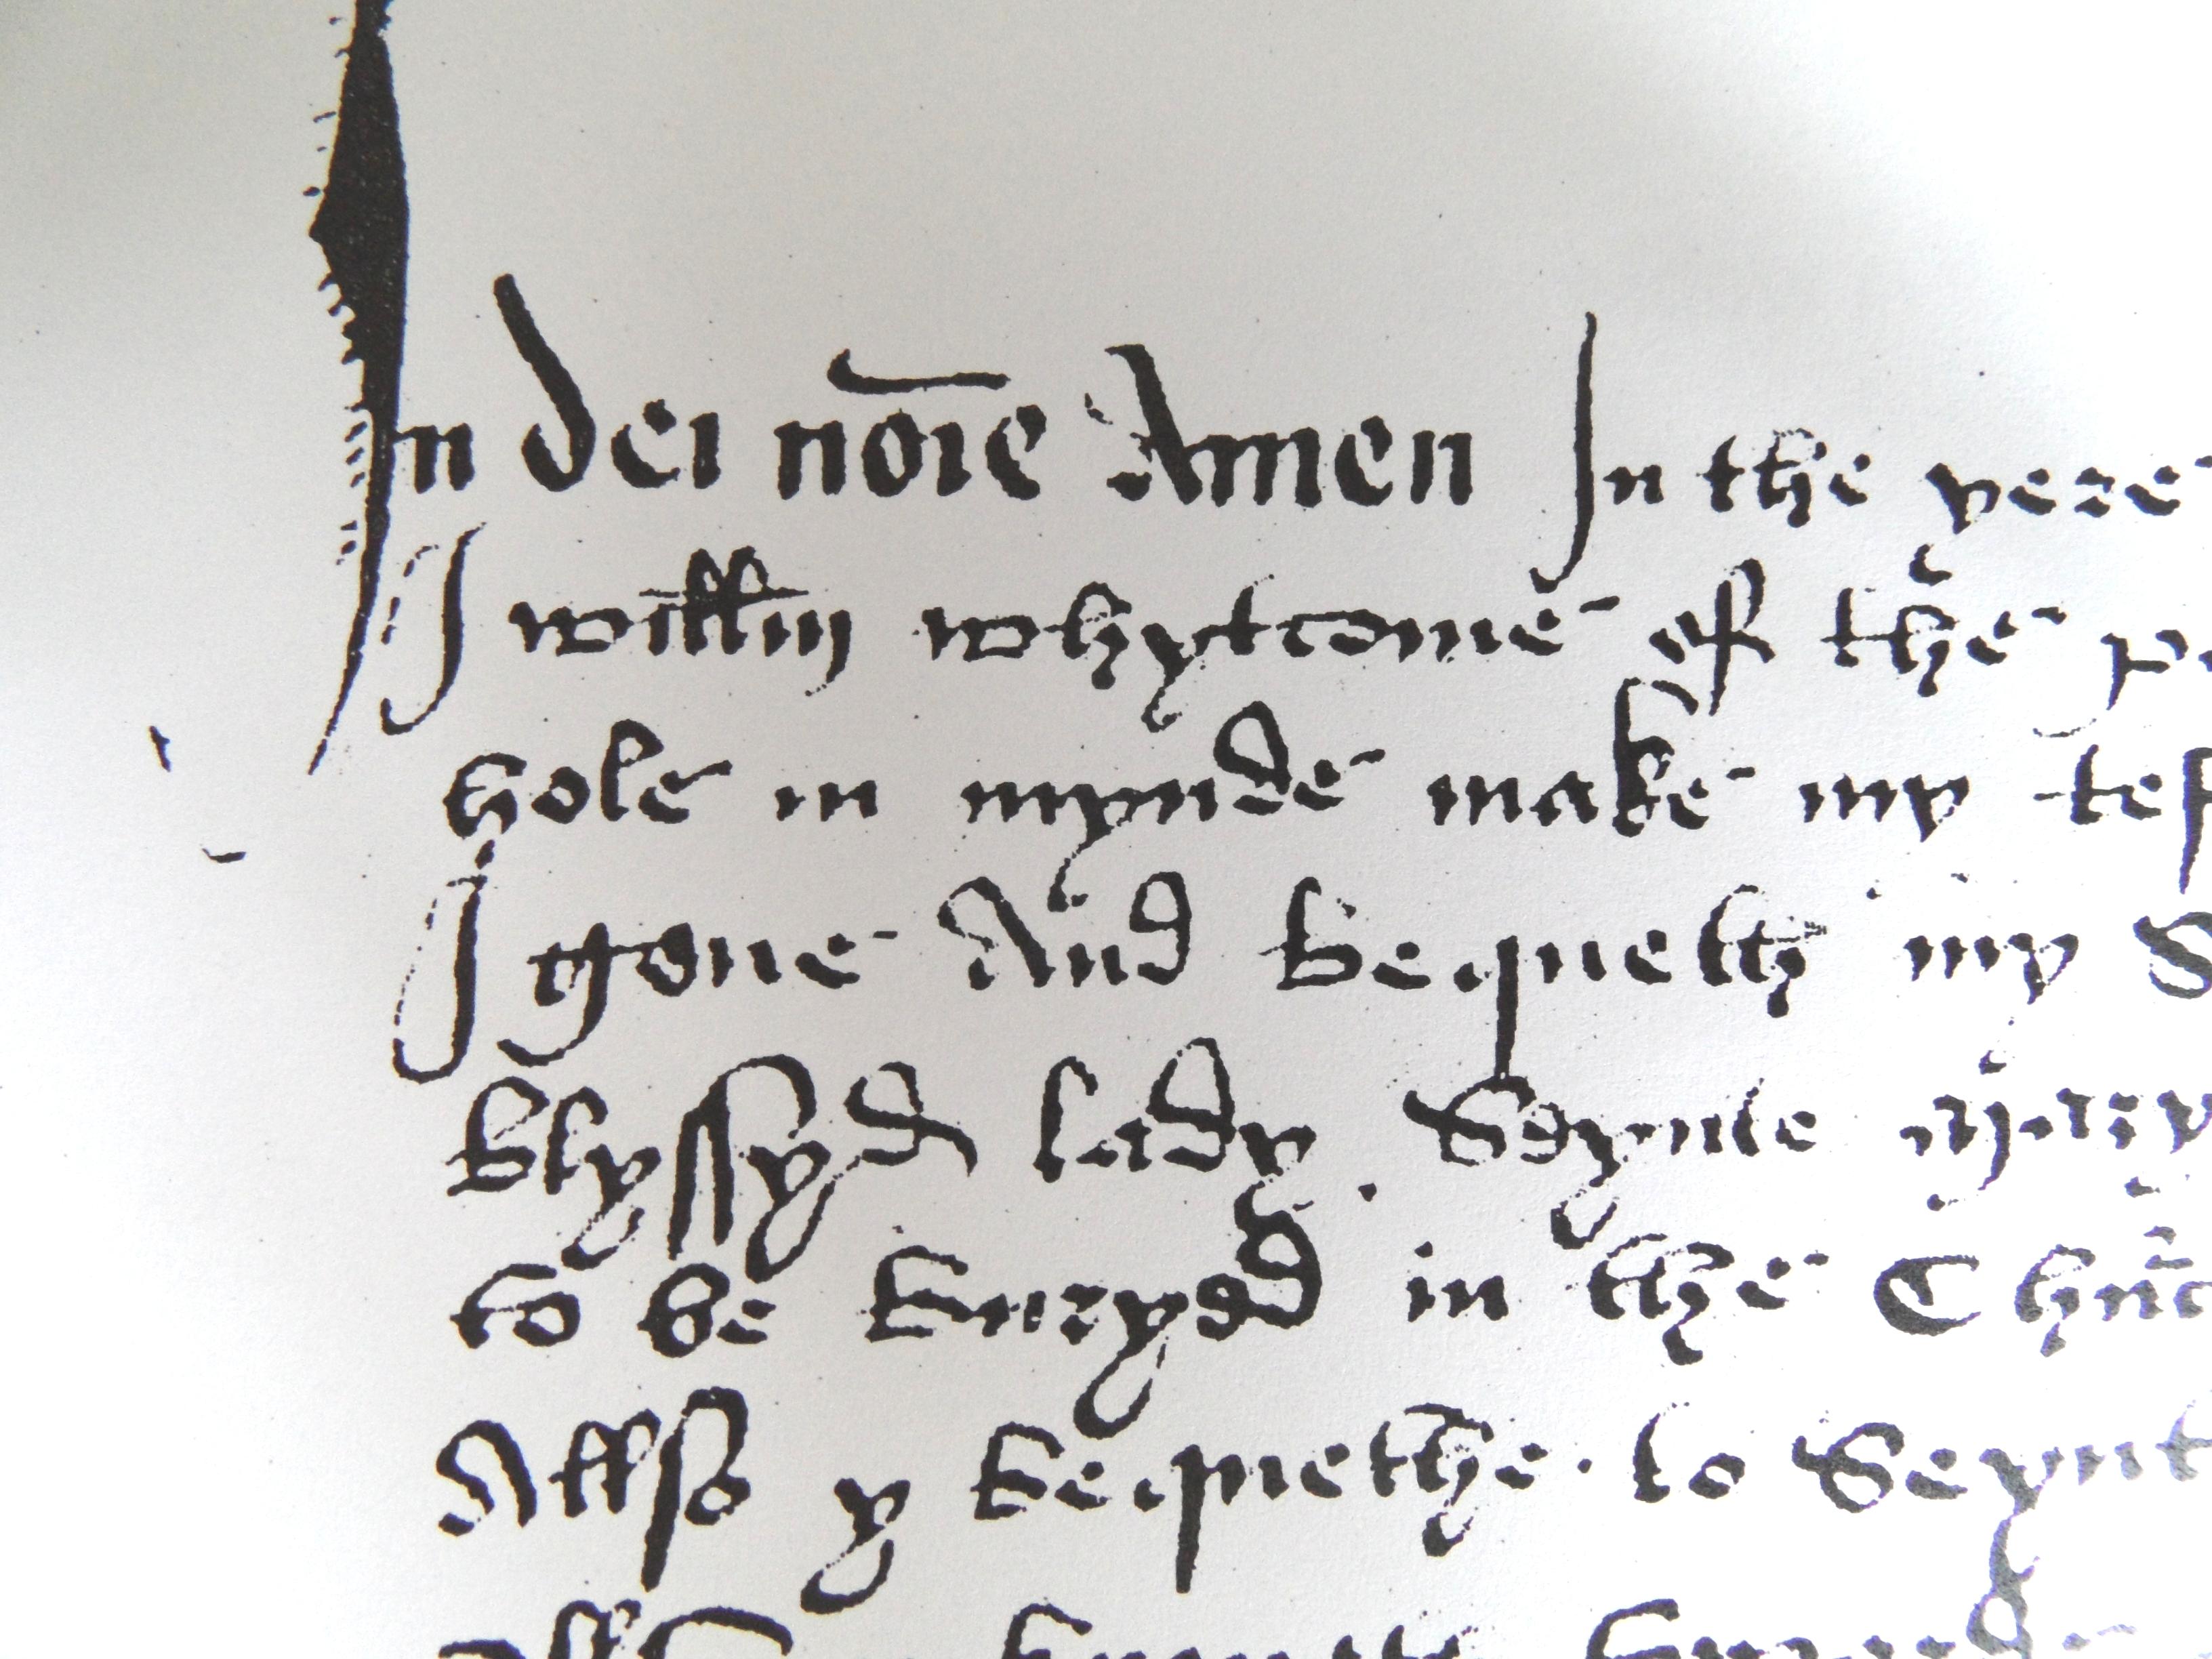 In dei noīe Amen In the yere
I willm whytcome of the
hole in mynde make my tes
I gone And bequeth my S
blyssyd lady Seynte Mary
to be buryed in the Churc
Allso y bequethe to Seynt